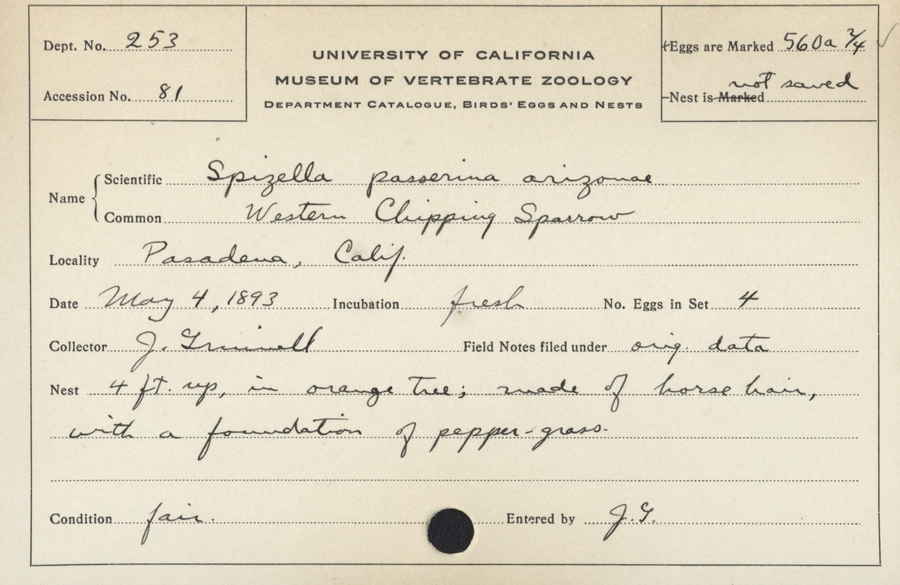 Dept. No. 253
Accession No. 81
UNIVERSITY OF CALIFORNIA
MUSEUM OF VERTEBRATE ZOOLOGY
DEPARTMENT CATALOGUE, BIRDS' EGGS AND NESTS
Eggs are Marked 560a 2/4 ✓
not saved
Nest is Marked
Name
Scientific Spizella passerina arizonae
Common Western Chipping Sparrow
Locality Pasadena, Calif.
Date May 4, 1893 Incubation fresh No. Eggs in Set 4
Collector J. Grinnell Field Notes filed under orig. data
Nest 4 ft. up, in orange tree; made of horse hair,
with a foundation of pepper-grass.
Condition fair. Entered by J.G.